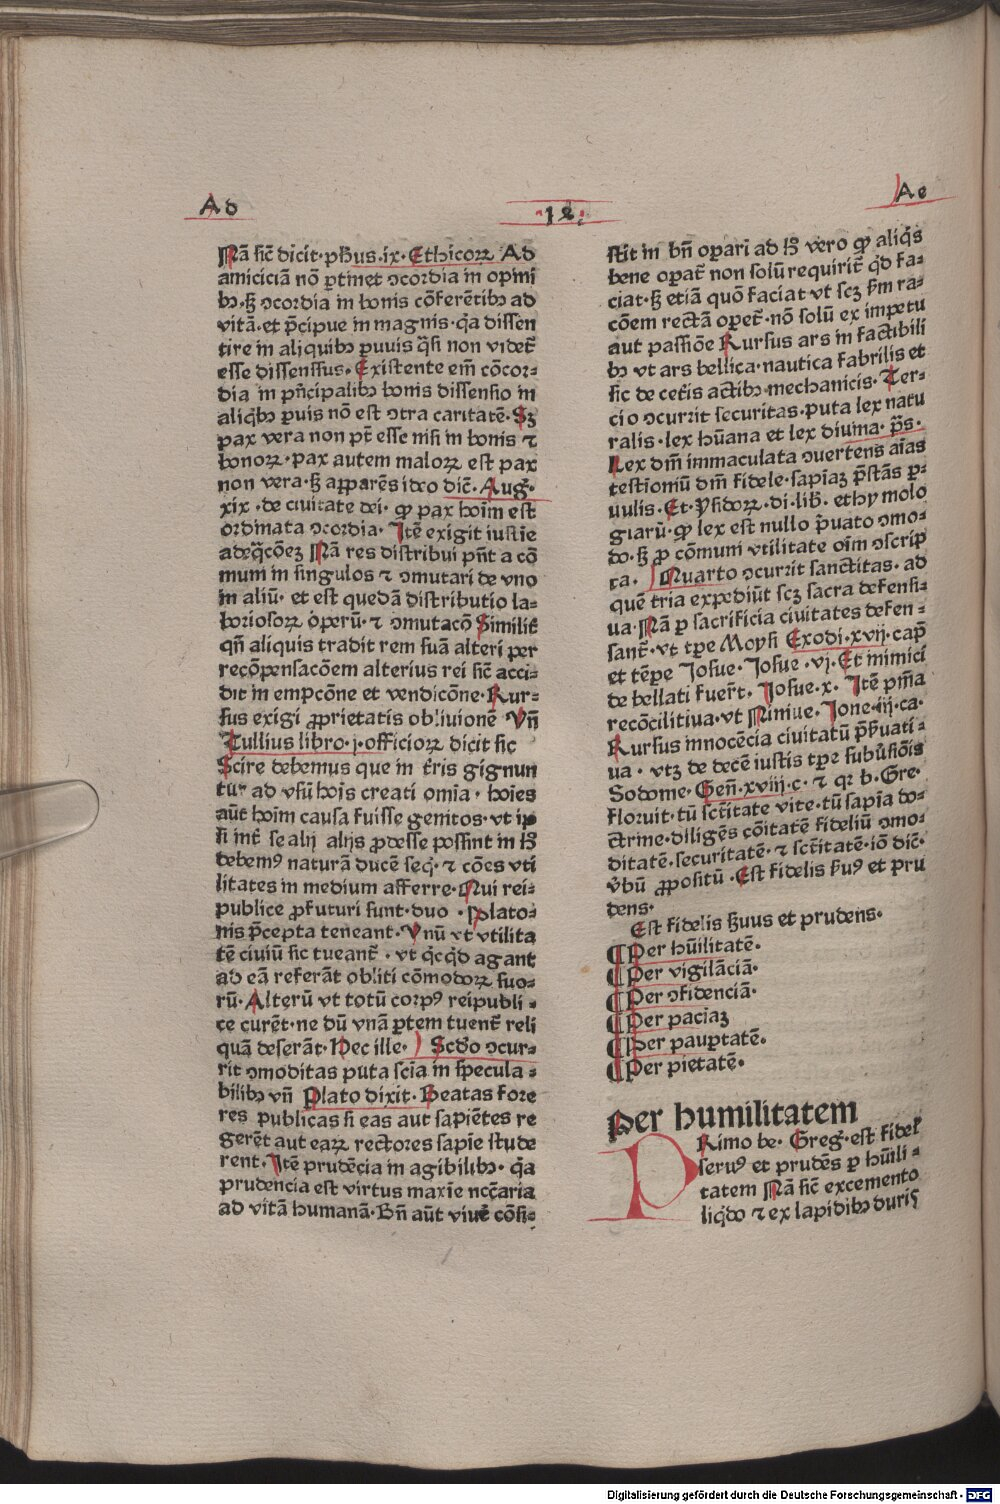 Ad
·12·
Ae
Nā sic̄ dicit·ph̄us·ix·Ethicoꝝ Ad
amiciciā nō ꝑtinet ꝯcordia in opini
bꝫ·sꝫ ꝯcordia in bonis cōferētibꝫ ad
vitā·et p̄cipue in magnis·q̄a dissen
tire in aliquibꝫ ꝑuuis q̄si non videt̄
esse dissenssus·Existente em̄ cōcor⸗
dia in pn̄cipalibꝫ bonis dissensio in
aliq̄bꝫ ꝑuis nō est ꝯtra caritatē·Sꝫ
pax vera non pt̄ esse nisi in bonis ⁊
bonoꝝ·pax autem maloꝝ est pax
non vera·sꝫ apparēs ideo dic̄·Auḡ·
xix·de ciuitate dei·ꝙ pax hoīm est
ordinata ꝯcordia·Itē exigit iustie
adeq̄cōeꝫ Nā res distribui pn̄t a cō
mum in singulos ⁊ ꝯmutari de vno
in aliū·et est quedā distributio la⸗
boriosoꝝ operū·⁊ ꝯmutacō Similit̄
qn̄ aliquis tradit rem suā alteri per
recōpensacōem alterius rei sic̄ acci⸗
dit in empcōne et vendicōne·Rur⸗
sus exigi ꝓprietatis obliuionē Vn̄
Tullius libro·j·officioꝝ dicit sic
Scire debemus que in t̄ris gignun
tur ad vsū hoīs creati omīa·hoīes
aūt hoīm causa fuisse genitos·vt ip
si int̄ se alij alijs ꝓdesse possint in hͦ
debemꝰ naturā ducē seq̄·⁊ cōes vti
litates in medium afferre·Qui rei⸗
publice ꝓfuturi sunt·duo·plato⸗
nis p̄cepta teneant·Vnū vt vtilita
tē ciuiū sic tueant̄·vt q̄cq̄d agant
ad eā referāt obliti cōmodoꝝ suo⸗
rū·Alterū vt totū corpꝰ reipubli⸗
ce curēt·ne dū vnā ꝑtem tuent̄ reli
quā deserāt·Hec ille·Scd̄o ꝯcur⸗
rit ꝯmoditas puta scīa in specula⸗
bilibꝫ vn̄ Plato dixit·Beatas fore
res publicas si eas aut sapiētes re
gerēt aut eaꝝ rectores sapīe stude
rent·Itē prudēcia in agibilibꝫ·q̄a
prudencia est virtus maxīe ncc̄aria
ad vitā humanā·Bn̄ aūt viue᷑ cōsi⸗
stit in bn̄ opari ad hͦ vero ꝙ aliq̄s
bene opat̄ non solū requirit̄ q̄d fa⸗
ciat·sꝫ etiā quō faciat vt scꝫ scd̄m ra⸗
cōem rectā opet̄·nō solū ex impetu
aut passiōe Rursus ars in factibili
bꝫ vt ars bellica·nautica fabrilis et
sic de cet̄is actibꝫ mechanicis·Ter⸗
cio ꝯcurrit securitas·puta lex natu
ralis·lex hūana et lex diuina·p̄s·
Lex dn̄i immaculata ꝯuertens aīas
testioniū dn̄i fidele·sapiaꝫ p̄stās p⸗
uulis·Et ysidoꝝ·di·lib̄·ethymolo
giarū·ꝙ lex est nullo p̄uato ꝯmo⸗
do·sꝫ ꝓ cōmuni vtilitate oīm ꝯscrip
ta·Quarto ꝯcurrit sanctitas·ad
quē tria expediūt scꝫ sacra defensi⸗
ua·Nā ꝑ sacrificia ciuitates defen⸗
sant̄·vt tꝑe Moysi Exodi·xvij·cap̄
et tēpe Josue·Josue·vj·Et inimici
de bellati fuer̄t·Josue·x·Itē pm̄a
recōcilitiua·vt Niniue·Jone·iij·ca·
Rursus innocēcia ciuitatū p̄suati⸗
ua·vtꝫ de decē iustis tꝑe subūsiōis
Sodome·Gen̄·xviij·c·⁊ qꝛ b·Gre·
floruit·tū sct̄itate vite·tū sapīa do⸗
ctrine·diligēs cōitatē fideliū ꝯmo⸗
ditatē·securitatē·⁊ sct̄itatē·iō dic̄·
v̄bū ꝓpositū·Est fidelis ſuꝰ et pru
dens·
Est fidelis ſuus et prudens·
¶Per hūilitatē·
¶Per vigilāciā·
¶Per ꝯfidenciā·
¶Per paciaꝫ
¶Per pauptatē·
¶Per pietatē·
Per humilitatem
PRimo be·Greḡ·est fidel̄
seruꝰ et prudēs ꝑ hūili⸗
tatem Nā sic̄ excemento
liq̄do ⁊ ex lapidibꝫ duris
Digitalisierung gefördert durch die Deutsche Forschungsgemeinschaft - DFG